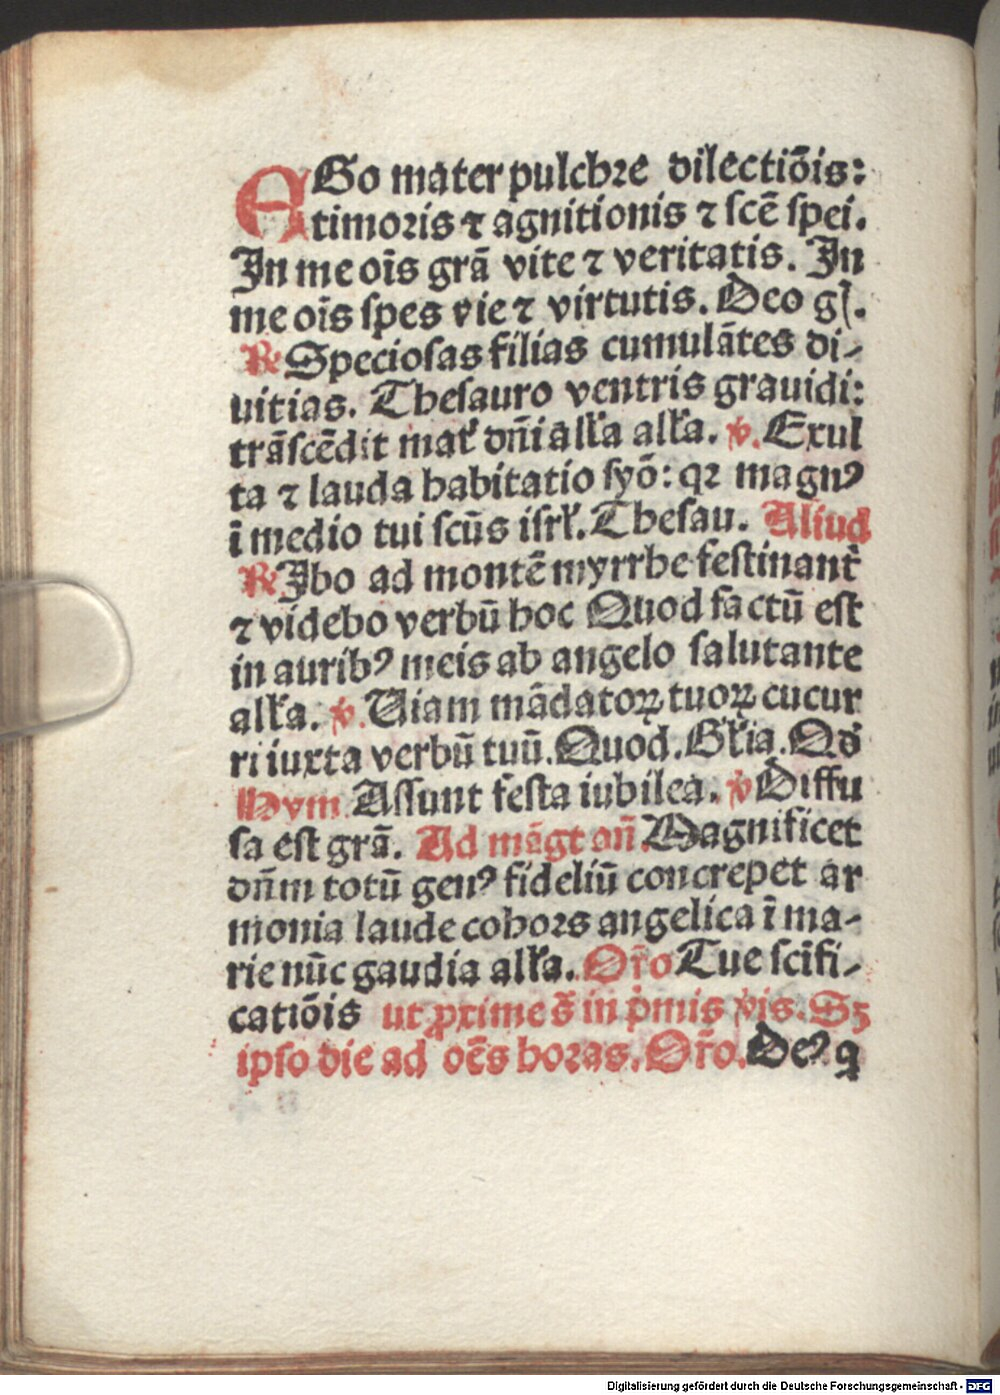 EGo mater pulchre dilectiõis:
timoris ⁊ agnitionis ⁊ scẽ spei.
In me oĩs grã vite ⁊ veritatis. In
me oĩs spes vie ⁊ virtutis. Deo gl̃.
℟ Speciosas filias cumulãtes di-
uitias. Thesauro ventris grauidi:
trãscẽdit mat̓ dñi all'a all'a. ℣. Exul
ta ⁊ lauda habitatio syõ: qꝛ magnꝰ
ĩ medio tui scũs isrl'. Thesau. Aliud
℟ Ibo ad montẽ myrrhe festinant̓
⁊ videbo verbũ hoc Quod factũ est
in auribꝰ meis ab angelo salutante
all'a. ℣. Uiam mãdatoꝝ tuoꝝ cucur
ri iuxta verbũ tuũ. Quod. Gl'ia. Qd̓
Hym Assunt festa iubilea. ℣ Diffu
sa est grã. Ad mãgt añ. Magnificet
dñm totũ genꝰ fideliũ concrepet ar
monia laude cohors angelica ĩ ma-
rie nũc gaudia all'a. Or̃o Tue scĩfi-
catiõis ut ꝓxime s̃ in p̓mis vis. Sꝫ
ipso die ad oẽs horas. Or̃o. Deꝰ q
Digitalisierung gefördert durch die Deutsche Forschungsgemeinschaft - DFG